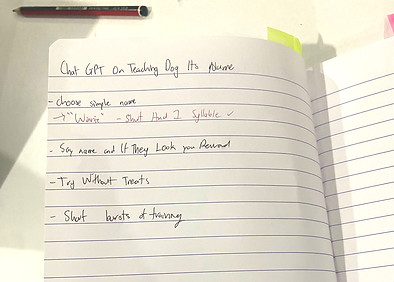 Chat GPT On Teaching Dog Its Name
- Choose simple name
→ " " - Short And 1 Syllable ✓
- Say name and If They Look you Reward
- Try Without Treats
- Short bursts of training